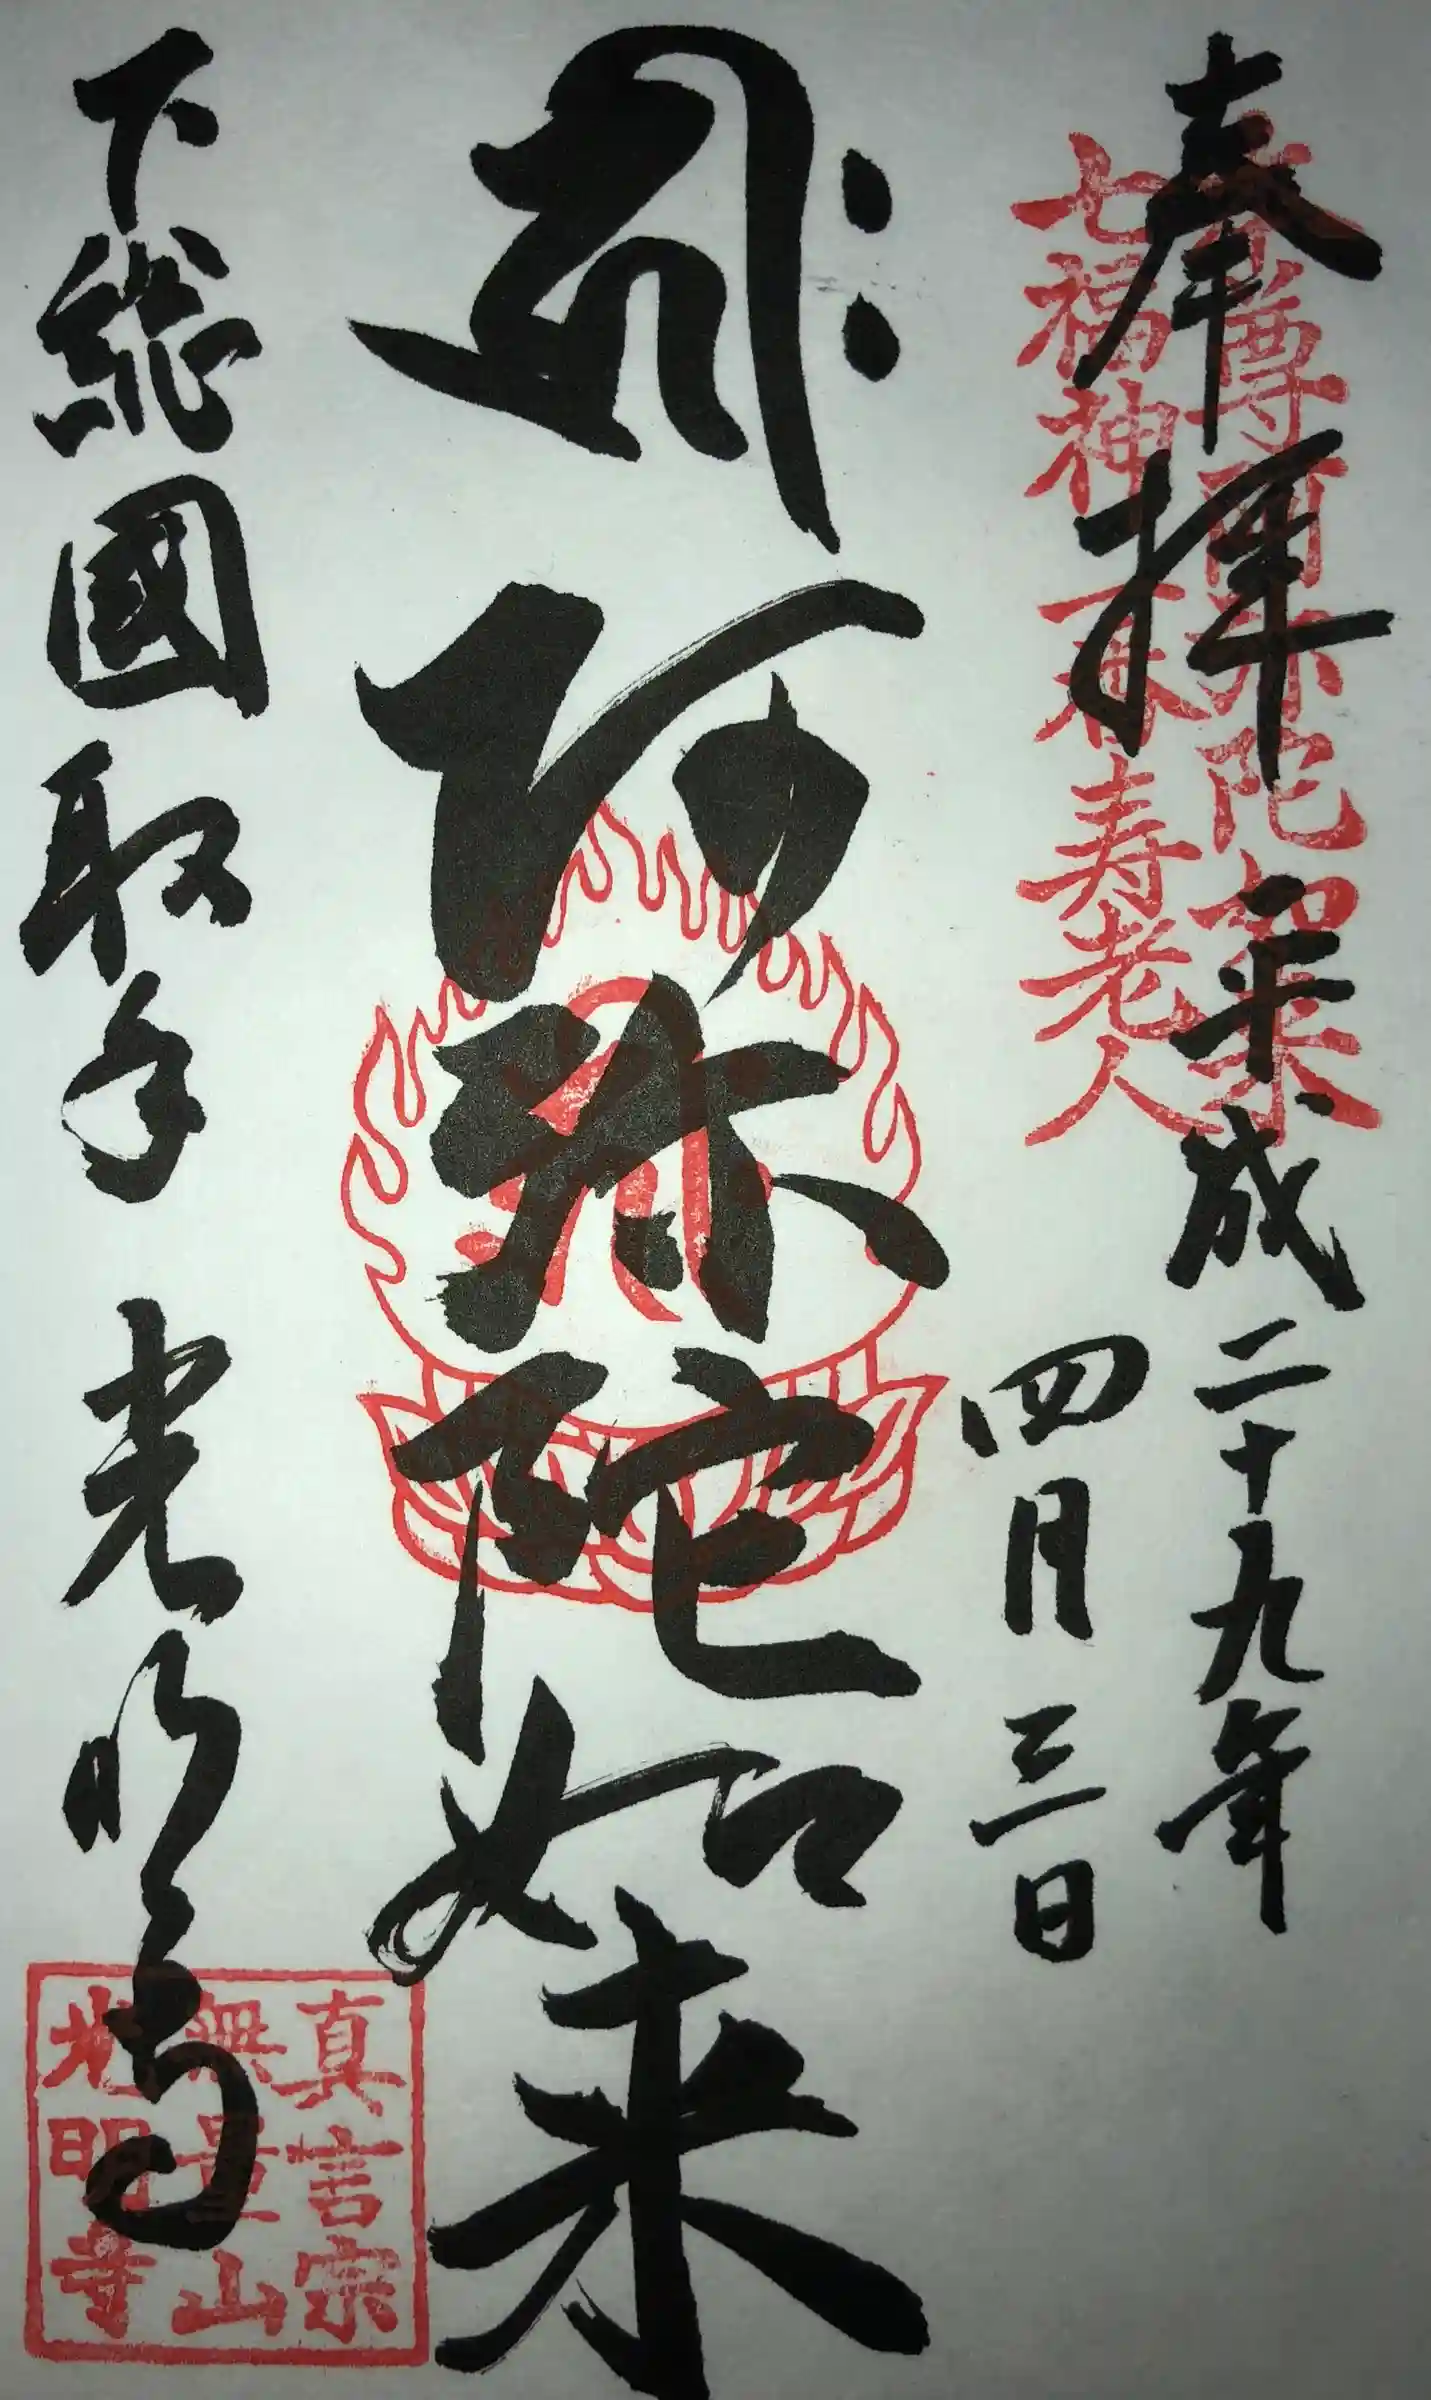 奉拝
本尊阿弥陀如来
七福神
春寿老人
平成二十九年
四月三日
阿弥陀如来
下総國取手
光明寺
真言宗
無量山
光明寺